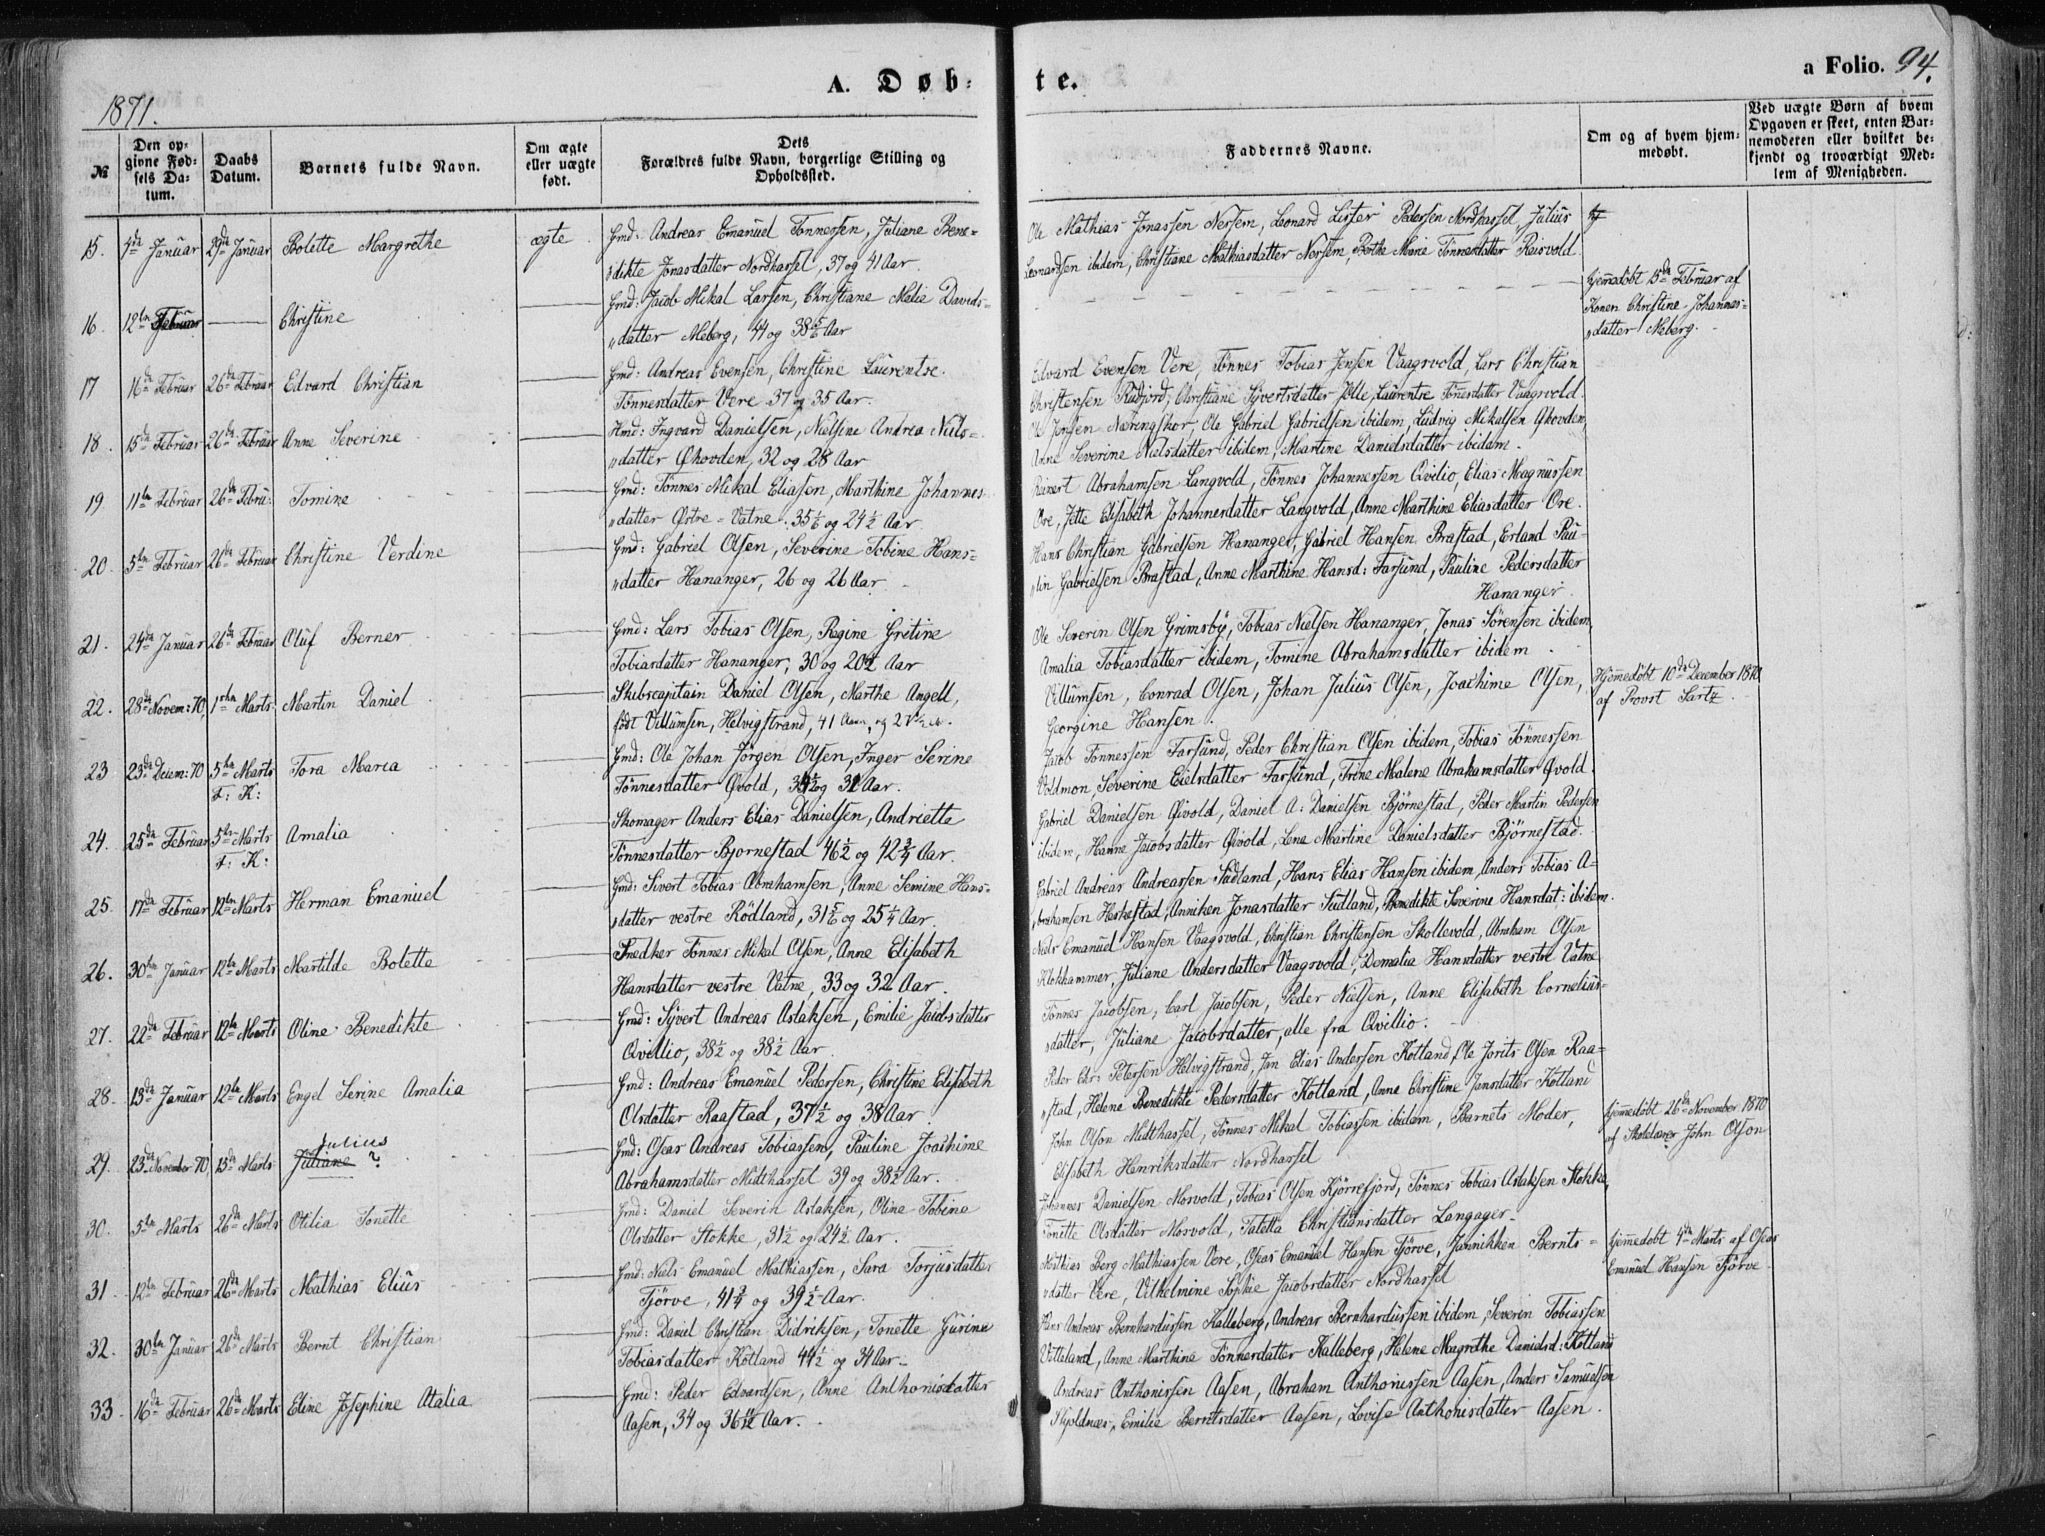 A. Døb-
te.
a Folio. 94.
1871.
№
Den op-
givne Fød-
sels Da-
tum.
Daabs
Datum.
Barnets fulde Navn.
Om ægte
eller uægte
født.
Dets
Forældres fulde Navn, borgerlige Stilling og
Opholdssted.
Faddernes Navne.
Om og af hvem hjem-
medøbt.
Ved uægte Børn af hvem
Opgaven er skeet, enten Bar-
nemoderen eller hvilket be-
kjendt og troværdigt Med-
lem af Menigheden.
15. Januar 29de Januar Bolette Margrethe ægte Gmd: Andreas Emanuel Tønnessen, Juliane Bene-
dikte Jonasdatter Nordhassel, 37 og 41 Aar.
Ole Mathias Jonassen Nersem, Leonard Lister Pedersen Nordhassel, Julius
Leonardsen ibidem, Christiane Mathiasdatter Nersem, Berthe Marie Tønnesdatter Reisvold.
16. 12te Februar Christine Gmd: Jacob Mikal Larsen, Christiane Malie Davids-
datter Meberg, 44 og 38 5/6 Aar
hjemmedøbt 15de Februar af
Konen Christine Johannes-
datter Meberg.
17 16de Februar 26de Februar Edvard Christian Gmd: Andreas Evensen, Christine Laurentse
Tønnesdatter Vere 37 og 35 Aar.
Edvard Evensen Vere, Tønnes Tobias Jensen Vaagsvold, Lars Christian
Christensen Rudjord, Christiane Syvertsdatter Jølle, Laurentse Tønnesdatter Vaagsvold.
18. 15de Februar 26de Februar Anne Severine Hmd: Ingvard Danielsen, Nielsine Andrea Niels-
datter Ohovden, 32 og 28 Aar
Ole Jensen Næringskor, Ole Gabriel Gabrielsen ibidem, Ludvig Mikalsen Ohovden
Anne Severine Nielsdatter ibidem, Martine Danielsdatter ibidem.
19 11te Februar 26de Febru: Tomine Gmd: Tønnes Mikal Eliassen, Marthine Johannes-
datter Østre-Vatne. 35 1/6 og 24 1/2 Aar.
Reinert Abrahamsen Langvold, Tønnes Johannessen Qvilio, Elias Magnussen
Ore, Jette Elisabeth Johannesdatter Langvold, Anne Marthine Eliasdatter Ore.
20. 5te Februar 26de Februar Christine Verdine Gmd: Gabriel Olsen, Severine Tobine Hans-
datter Hananger, 26 og 26 Aar.
Hans Christian Gabrielsen Hananger, Gabriel Hansen Brastad, Erland Pau-
lin Gabrielsen Brastad, Anne Marthine Hansd: Farsund, Pauline Pedersdatter
Hananger.
21. 24de Januar 26de Februar Oluf Berner Gmd: Lars Tobias Olsen, Regine Gretine
Tobiasdatter Hananger, 30 og 20 1/2 Aar
Ole Severin Olsen Grimsby, Tobias Nielsen Hananger, Jonas Sørensen ibidem,
Amalia Tobiasdatter ibidem, Tomine Abrahamsdatter ibidem
22. 28de Novem: 70, 1ste Marts Martin Daniel Skibscapitain Daniel Olsen, Marthe Angell,
født Villumsen, Helvigstrand, 41 Aar og
Villumsen, Conrad Olsen, Johan Julius Olsen, Joachime Olsen,
Georgine Hansen.
Hjemmedøbt 10de December 1870,
af Provst Sartz.
23 23de Decem: 70 5te Marts
F: K:
Tora Maria Gmd: Ole Johan Jörgen Olsen, Inger Serine
Tønnesdatter Qvold, og 31 Aar.
Jacob Tønnessen Farsund, Peder Christian Olsen ibidem, Tobias Tønnessen
Voldmon, Severine Eielsdatter Farsund, Trine Malene Abrahamsdatter Qvold.
24. 25de Februar 5te Marts
F: K:
Amalia Skomager Anders Elias Danielsen, Andriette
Tønnesdatter Bjørnestad 46 1/2 og 42 3/4 Aar.
Gabriel Danielsen Qvivold, Daniel A: Danielsen Bjørnestad, Peder Martin Pedersen
ibidem, Hanne Jacobsdatter Qvivold, Lena Martine Danielsdatter Bjørnestad.
25. 17de Februar 12te Marts Herman Emanuel Gmd: Sivert Tobias Abrahamsen, Anne Semine Hans-
datter vestre Rödland, 31 5/6 og 25 1/4 Aar.
Gabriel Andreas Andreassen Sudland, Hans Elias Hansen ibidem, Anders Tobias A-
brahamsen Heskestad, Anniken Jonasdatter Sudland, Benedikte Severine Hansdat: ibidem.
26. 30te Januar 12te Marts Martilde Bolette Snedker Tønnes Mikal Olsen, Anne Elisabeth
Hansdatter vestre Vatne, 33 og 32 Aar.
Niels Emanuel Hansen Vaagsvold, Christian Christensen Skollevold, Abraham Olsen
Klokhammer, Juliane Andersdatter Vaagsvold, Domalia Hansdatter vestre Vatne
27. 22de Februar 12te Marts Oline Benedikte Gmd: Syvert Andreas Aslaksen, Emilie Jacobsdatter
Qvillio, 38 1/2 og 38 1/2 Aar.
Tønnes Jacobsen, Carl Jacobsen, Peder Nielsen, Anne Elisabeth Cornelius-
datter, Juliane Jacobsdatter, alle fra Qvillio.
28. 13de Januar 12te Marts Engel Serine Amalia Gmd: Andreas Emanuel Pedersen, Christine Elisabeth
Olsdatter Raastad, 37 1/2 og 38 Aar
Peder Chr: Petersen Helvigstrand, Jan Elias Andersen Kotland, Ole Jorits Olsen Raa-
stad, Helene Benedikte Pedersdatter Kotland, Anne Christine Jansdatter Kotland
29. 23de November 70, 13de Marts Julius
Juliane ? Gmd: Oseas Andreas Tobiassen, Pauline Joachime
Abrahamsdatter Midthassel 39 og 38 1/2 Aar.
John Olson Midthassel, Tønnes Mikal Tobiassen ibidem, Barnets Moder,
Elisabeth Henriksdatter Nordhassel
hjemmedøbt 26de November 1870
af Skolelærer John Olson
30. 5te Marts 26de Marts Otilia Tonette Gmd: Daniel Severin Aslaksen, Oline Tobine
Olsdatter Stokke, 31 1/2 og 24 1/2 Aar.
Johannes Danielsen Mosvold, Tobias Olsen Kjørrefjord, Tønnes Tobias Aslaksen Stokke,
Tonette Olsdatter Mosvold, Taletta Christiansdatter Langager
31. 12te Februar 26de Marts Mathias Elius Gmd: Niels Emanuel Mathiassen, Sara Torjusdatter
Tjörve, 41 3/4 og 39 1/2 Aar.
Mathias Berg Mathiassen Vere, Oseas Emanuel Hansen Tjörve, Jannikken Bernts-
datter Vere, Vilhelmine Sophie Jacobsdatter Nordhassel
hjemmedøbt 4de Marts af Oseas
Emanuel Hansen Tjörve.
32. 30te Januar 26de Marts Bernt Christian Gmd: Daniel Christian Didriksen, Tonette Gurine
Tobiasdatter Kotland 44 1/2 og 34 Aar
Hans Andreas Bernhardussen Kalleberg, Andreas Bernhardussen ibidem, Severin Tobiassen
Vitteland, Anne Marthine Tønnesdatter Kalleberg, Helene Magrethe Danielsd: Kotland
33. 16de Februar 26de Marts Eline Josephine Atalia Gmd: Peder Edvardsen, Anne Anthonisdatter
Aasen, 34 og 36 Aar.
Andreas Anthonissen Aasen, Abraham Anthonissen Aasen, Anders Samuelsen
Skjoldnæs, Emilie Berntsdatter Aasen, Lovise Anthonisdatter Aasen.